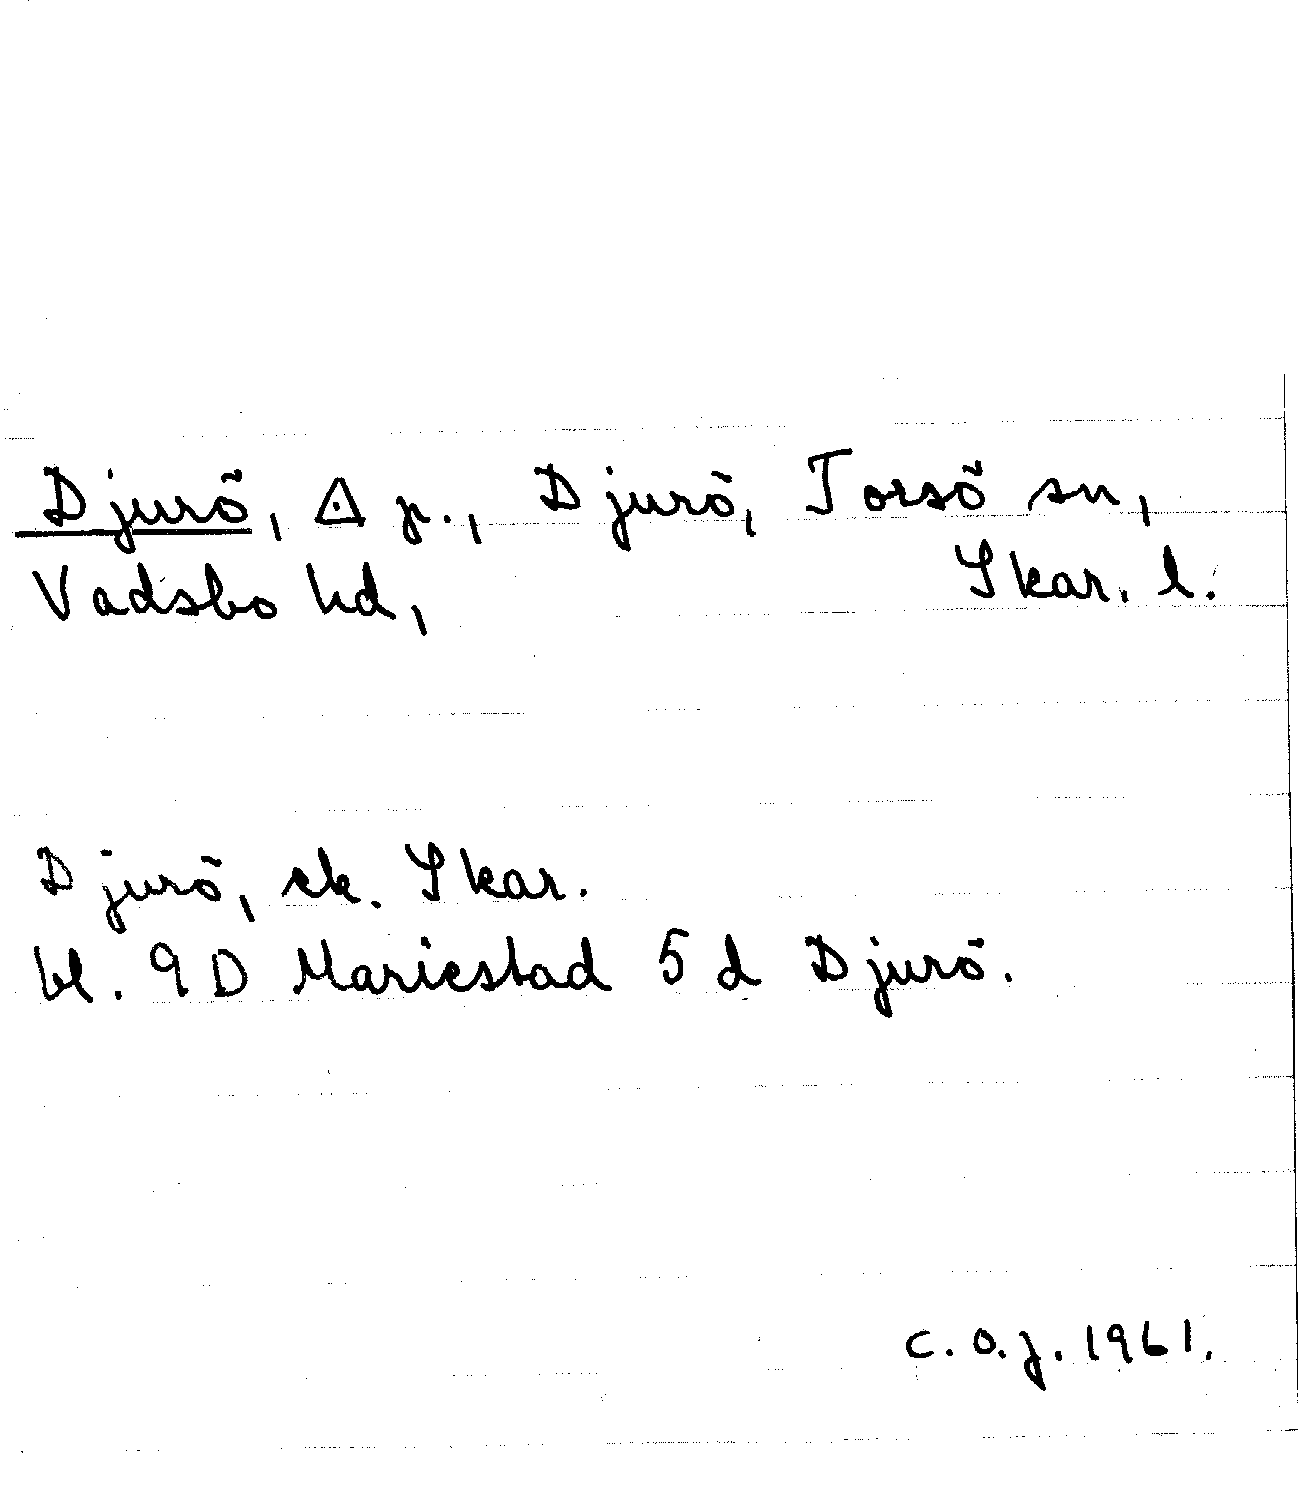 Djurö, ◬ p., Djurö, Torsö sn,
Vadsbo hd, Skar. l.
Djurö, ek. Skar.
bl. 9D Mariestad 5d Djurö.
C.O.J. 1961.